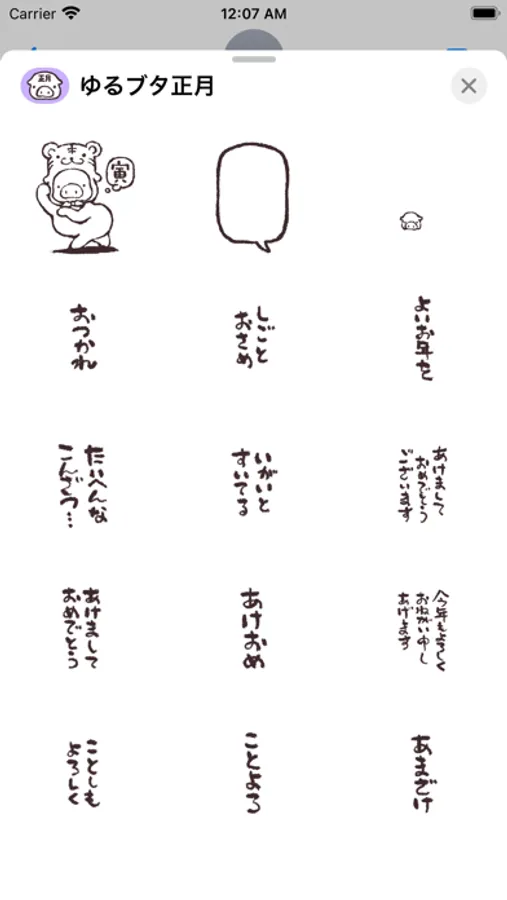 Carrier
12:07 AM
正月
ゆるブタ正月
寅
おつかれ
しごと
おさめ
よいお年を
たいへんな
こんざつ…
いがいと
すいてる
あけまして
おめでとう
ございます
あけまして
おめでとう
あけおめ
今年もよろしく
おねがい申し
あげます
ことしも
よろしく
ことよろ
あまざけ